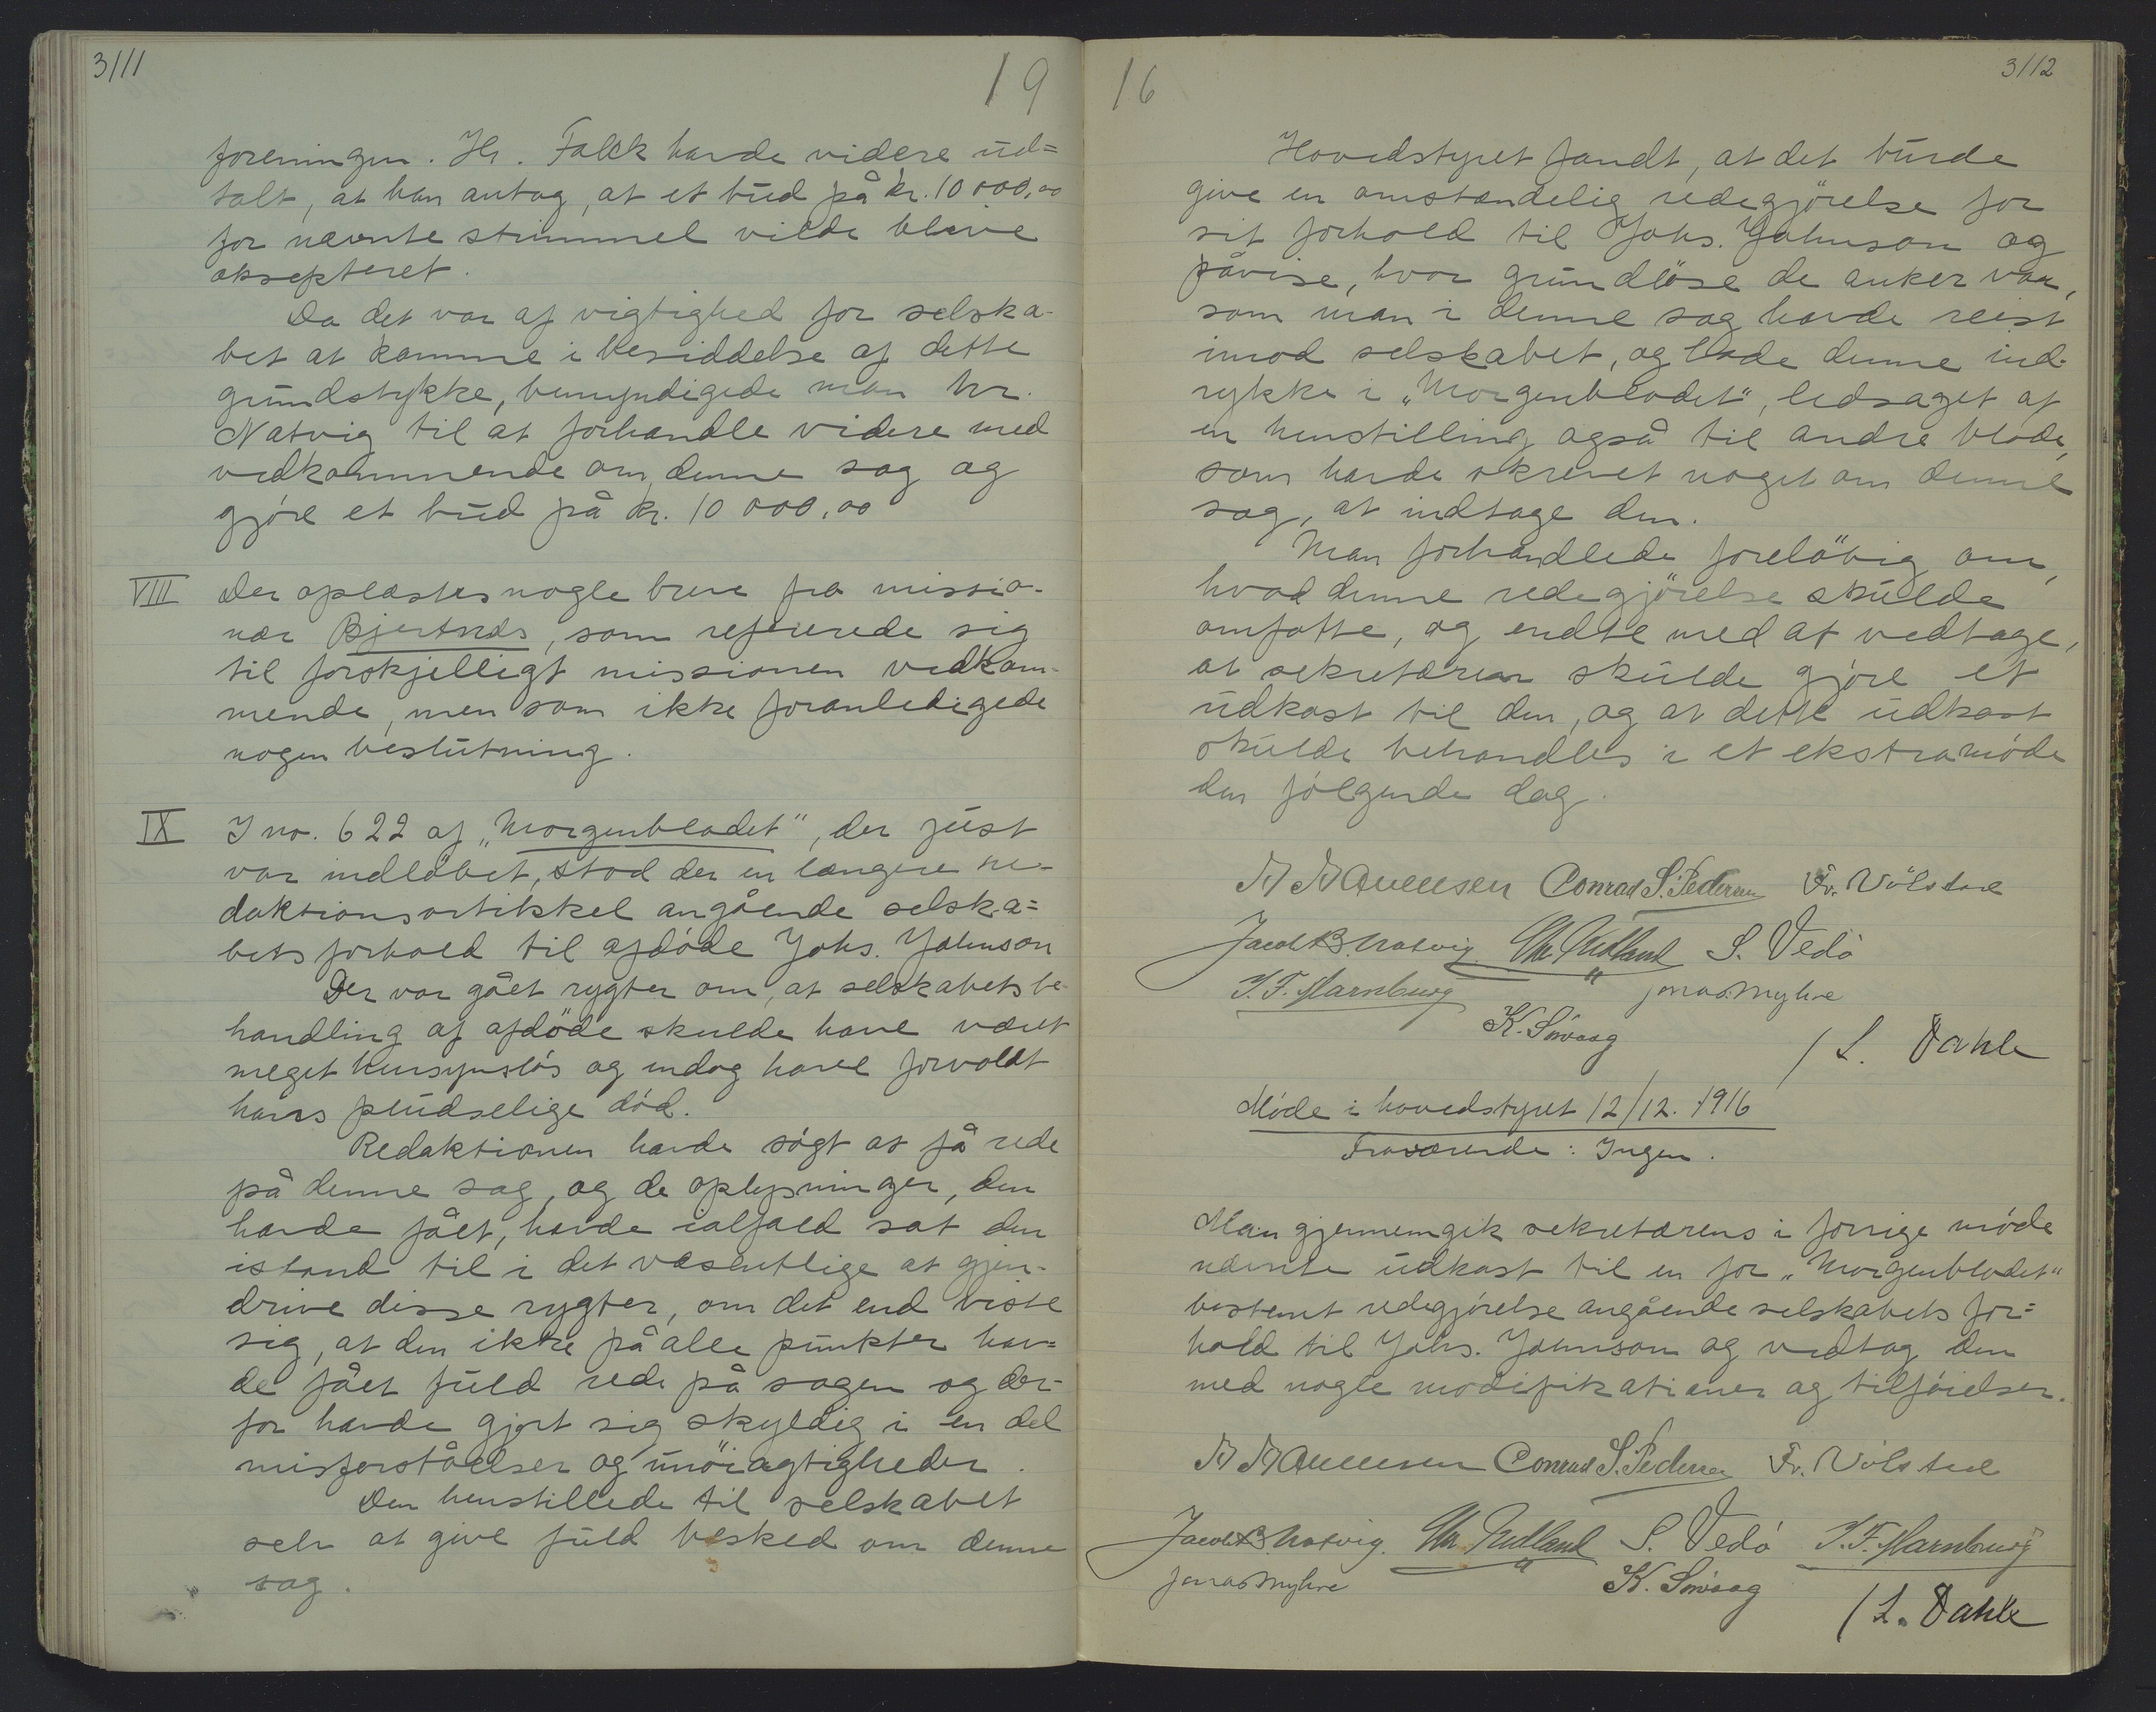 3/11
19
foreningen. Hr. Falck havde videre ud=
talt, at han antog, at et bud på kr. 10 000,00
for nævnte strimmel vilde blive
aksepteret.
Da det var af vigtighed for selska-
bet at komme i besiddelse af dette
grundstykke, bemyndigede man hr.
Natvig til at forhandle videre med
vedkommende om denne sag og
gjöre et bud på kr. 10 000,00
VIII Der oplæstes nogle breve fra missio-
nær Bjertnæs, som refererede sig
til forskjelligt missionen vedkom-
mende, men som ikke foranledigede
nogen beslutning.
IX I no. 622 af „Morgenbladet", der just
var indløbet, stod der en længere re-
daktionsartikkel angående selska=
bets forhold til afdöde Johs. Johnson
Der var gået rygter om, at selskabets be-
handling af afdöde skulde have været
meget hensynslös og endog have forvoldt
hans pludselige död.
Redaktionen havde sögt at få rede
på denne sag, og de oplysninger, den
havde fået, havde ialfald sat den
istand til i det væsentlige at gjen-
drive disse rygter, om det end viste
sig, at den ikke på alle punkter hav=
de fået fuld rede på sagen og der-
for havde gjort sig skyldig i en del
misforståelser og unöiagtigheder.
Den henstillede til selskabet
selv at give fuld besked om denne
sag.
16
3/12
Hovedstyret fandt, at det burde
give en omstændelig redegjörelse for
sit forhold til Johs. Johnson og
påvise, hvor grundlöse de anker var,
som man i denne sag havde reist
imod selskabet, og lade denne ind-
rykke i „Morgenbladet", ledsaget af
en henstilling også til andre blade,
som havde skrevet noget om denne
sag, at indtage den.
Man forhandlede foreløbig om,
hvad denne redegjörelse skulde
omfatte, og endte med at vedtage,
at sekretæren skulde gjöre et
udkast til den, og at dette udkast
skulde behandles i et ekstramöde
den fölgende dag.
Conrad S. Pedersen Fr. Völstad
Jacob B. Natvig. Chr. Nedland S. Vedö
T. F. Marnburg Jonas Myhre
K. Sövaag
/ L. Dahle
Möde i hovedstyret 12/12. 1916
Fraværende: Ingen.
Man gjennemgik sekretærens i forrige möde
nævnte udkast til en for „Morgenbladet"
bestemt redegjörelse angående selskabets for=
hold til Johs. Johnson og vedtog den
med nogle modifikationer og tilföielser.
Conrad S. Pedersen Fr. Völstad
Jacob B. Natvig. Chr. Nedland S. Vedö T. F. Marnburg
Jonas Myhre K. Sövaag
/ L. Dahle